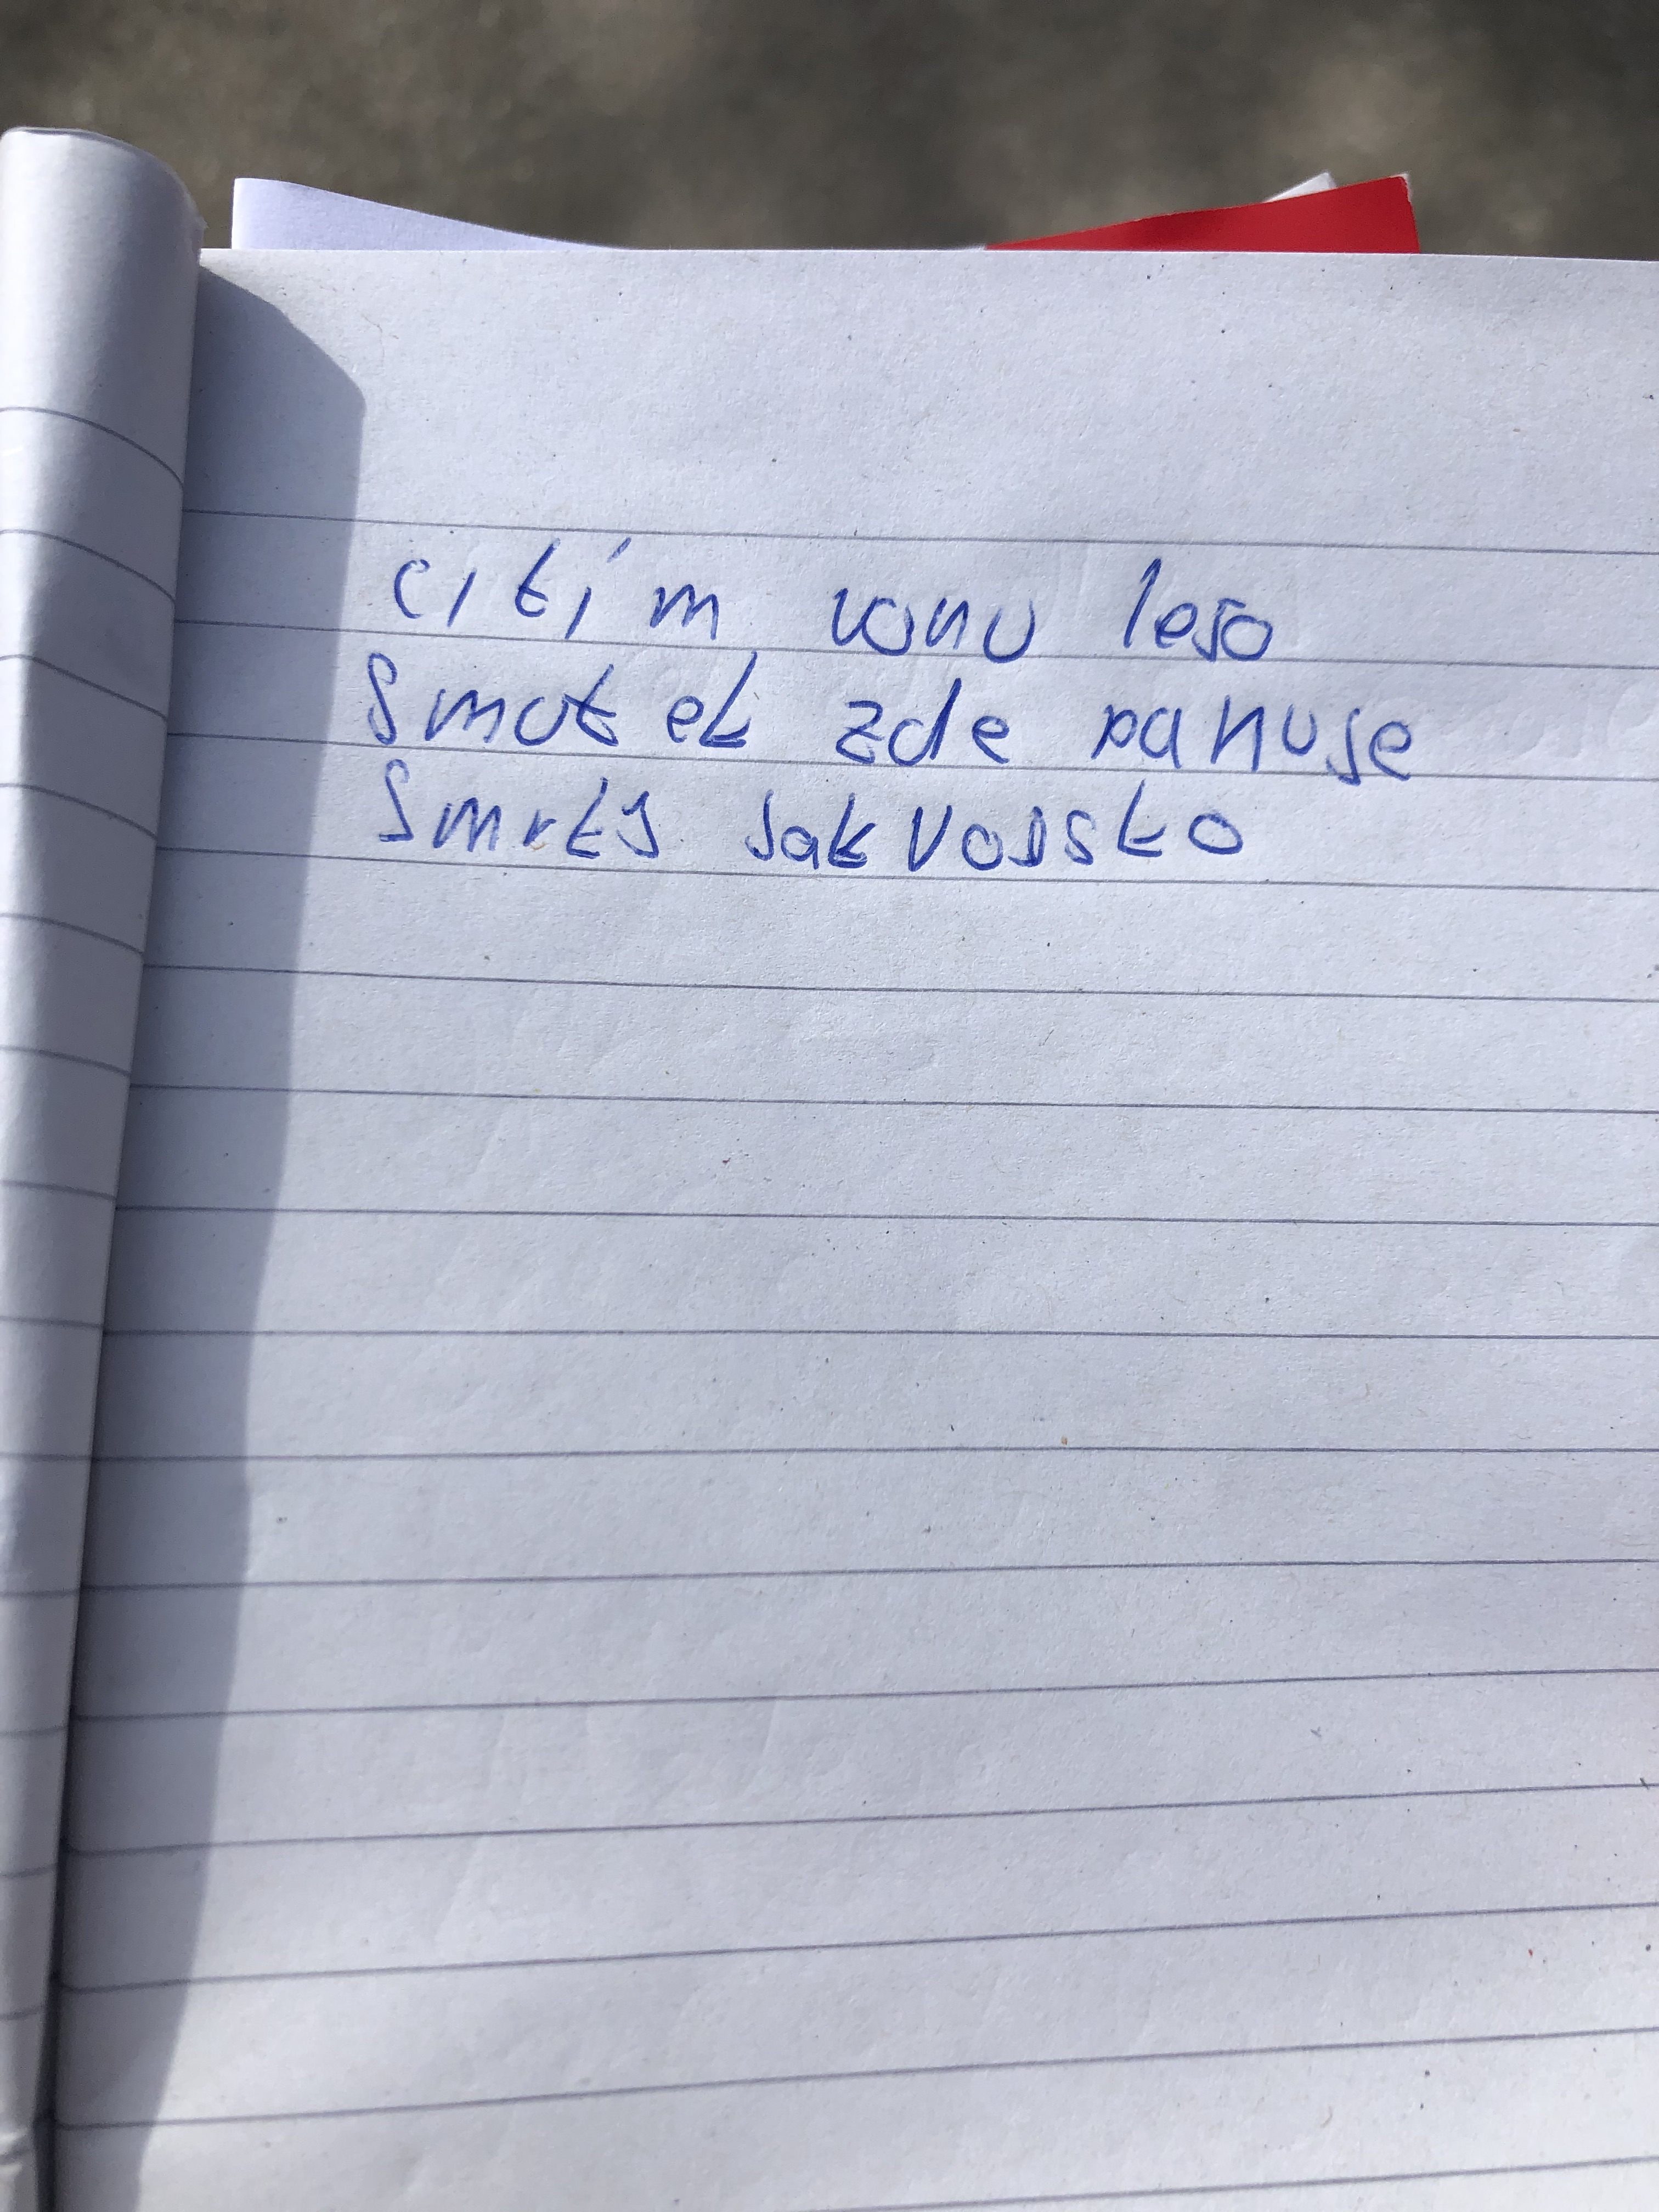 citím vonu leso
Smutek zde panuje
Smrts jak vojsko